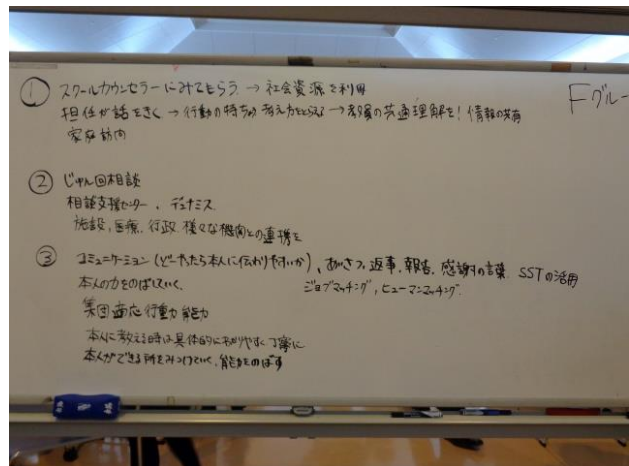 Fグルー
① スクールカウンセラーにみてもらう → 社会資源を利用
担任が話をきく → 行動の特ちょう 考え方をとらえる → 教員の共通理解を! 情報の共有
家庭訪問
② じゅん回相談
相談支援センター、デュナミス
施設、医療、行政 様々な機関との連携を
③ コミュニケーション(どーやったら本人に伝わりやすいか)、あいさつ、返事、報告、感謝の言葉 SSTの活用
本人の力をのばしていく、 ジョブマッチング、ヒューマンマッチング.
集団適応行動力 能力
本人に教える時は具体的にわかりやすく丁寧に
本人ができる所をみつけていく、能力をのばす